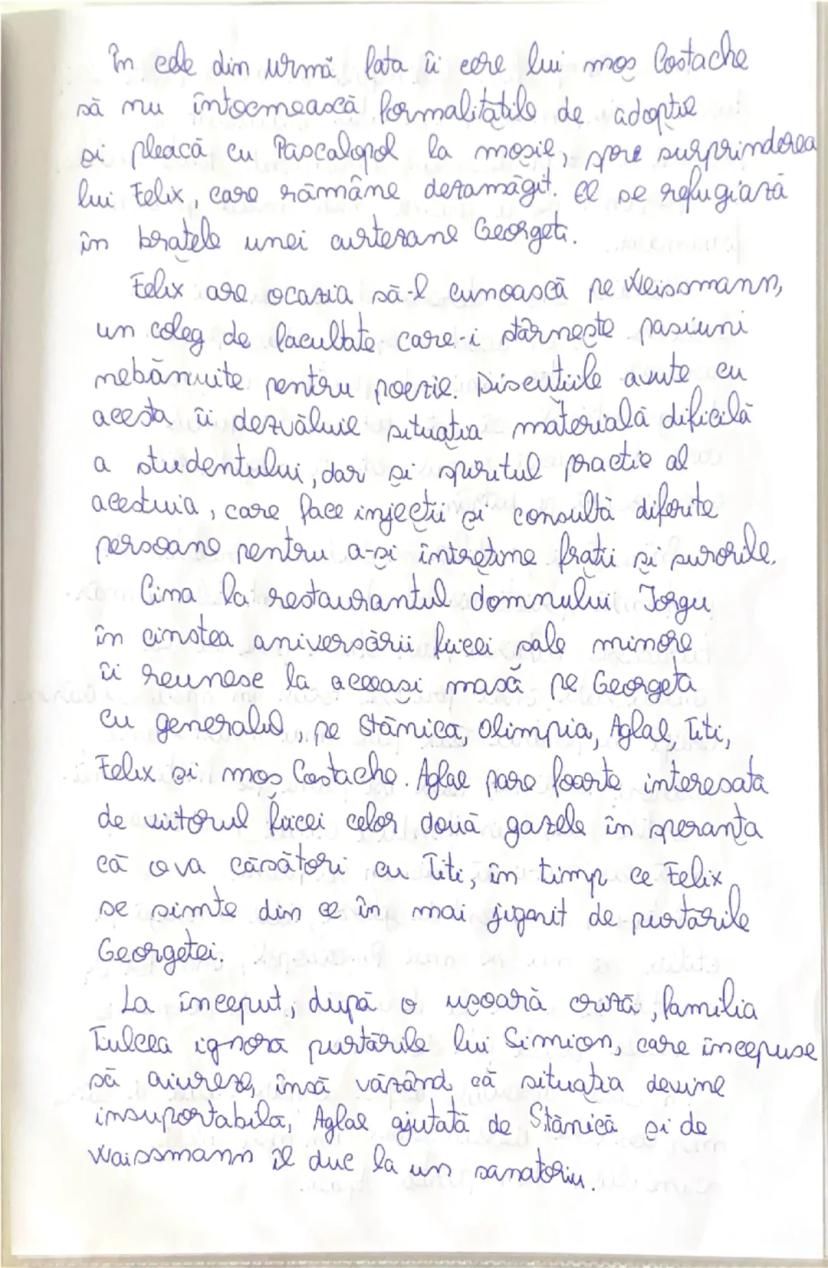 În cele din urmă fata îi cere lui moș Costache
să nu întocmească formalitățile de adopție
și pleacă cu Pascalopol la moșie, spre surprinderea
lui Felix, care rămâne dezamăgit. El se refugiază
în brațele unei curtezane Georgeta.
Felix are ocazia să-l cunoască pe Weissmann,
un coleg de facultate care-i stârnește pasiuni
nebănuite pentru poezie. Discuțiile avute cu
acesta îi dezvăluie situația materială dificilă
a studentului, dar și spiritul practic al
acestuia, care face injecții și consultă diferite
persoane pentru a-și întreține frații și surorile.
Cina la restaurantul domnului Iorgu
în cinstea aniversării fiicei sale minore
îi reunesc la aceeași masă pe Georgeta
cu generalul, pe Stănică, Olimpia, Aglae, Titi,
Felix și moș Costache. Aglae pare foarte interesată
de viitorul fiicei celor două gazde în speranța
că o va căsători cu Titi, în timp ce Felix
se simte din ce în mai jignit de purtările
Georgetei.
La început, după o ușoară criză, familia
Tulcea ignoră purtările lui Simion, care începuse
să aiureze, însă văzând că situația devine
insuportabilă, Aglae ajutată de Stănică și de
Waissmann îl duc la un sanatoriu.